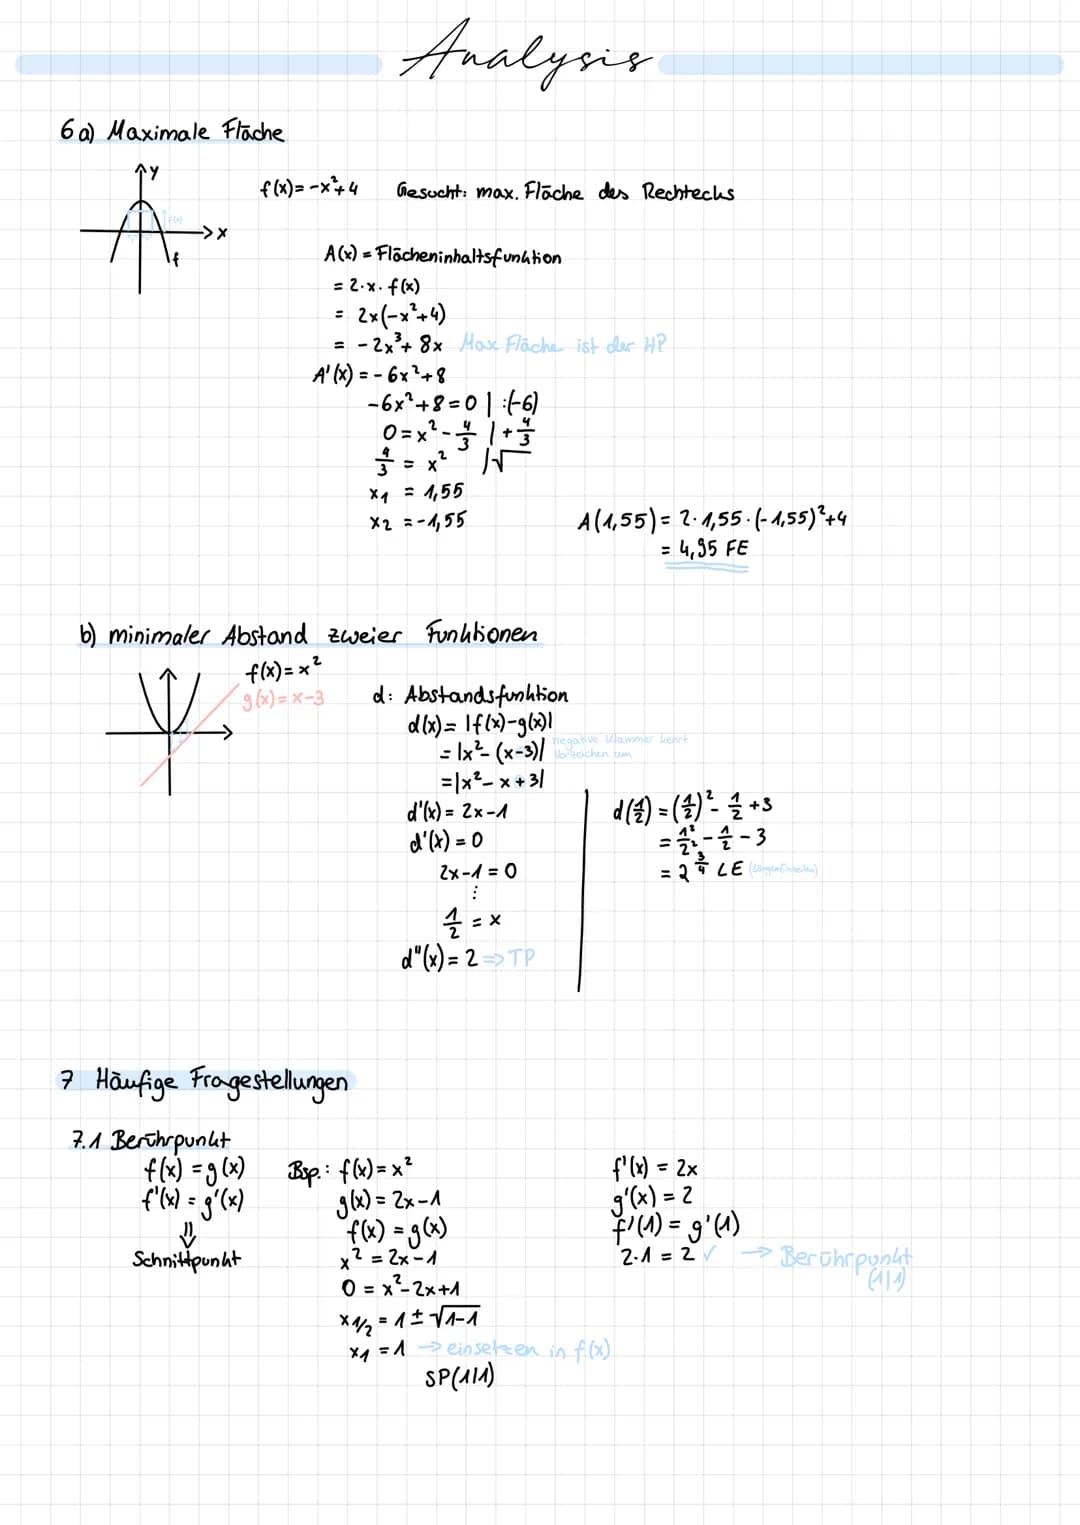 Analysis
6a) Maximale Fläche
y
x
f
f(x)
f(x) = -x²+4 Gesucht: max. Fläche des Rechtecks
A(x) = Flächeninhaltsfunktion
= 2·x·f(x)
= 2x(-x²+4)
= -2x³+8x Max Fläche ist der HP
A'(x) = -6x²+8
-6x²+8=0 | :(-6)
0=x²-4/3 | +4/3
4/3 = x² |√
x1 = 1,55
x2 = -1,55
A(1,55) = 2·1,55·(-1,55)²+4
= 4,95 FE
b) minimaler Abstand zweier Funktionen
f(x)=x²
g(x)=x-3
d: Abstandsfunktion
d(x) = |f(x)-g(x)|
= |x²-(x-3)| negative Klammer kehrt
Vorzeichen um
=|x²-x+3|
d'(x) = 2x-1
d'(x) = 0
2x-1=0
⋮
1/2 = x
d"(x) = 2 => TP
d(1/2) = (1/2)² - 1/2 +3
= 1²/2² - 1/2 - 3
= 2 3/4 LE (Längeneinheiten)
7 Häufige Fragestellungen
7.1 Berührpunkt
f(x) = g(x)
f'(x) = g'(x)
⇓
Schnittpunkt
Bsp.: f(x) = x²
g(x) = 2x-1
f(x) = g(x)
x² = 2x-1
0 = x²-2x+1
x1/2 = 1±√1-1
x1 = 1 → einsetzen in f(x)
SP(1|1)
f'(x) = 2x
g'(x) = 2
f'(1) = g'(1)
2·1 = 2 ✓ → Berührpunkt
(1|1)